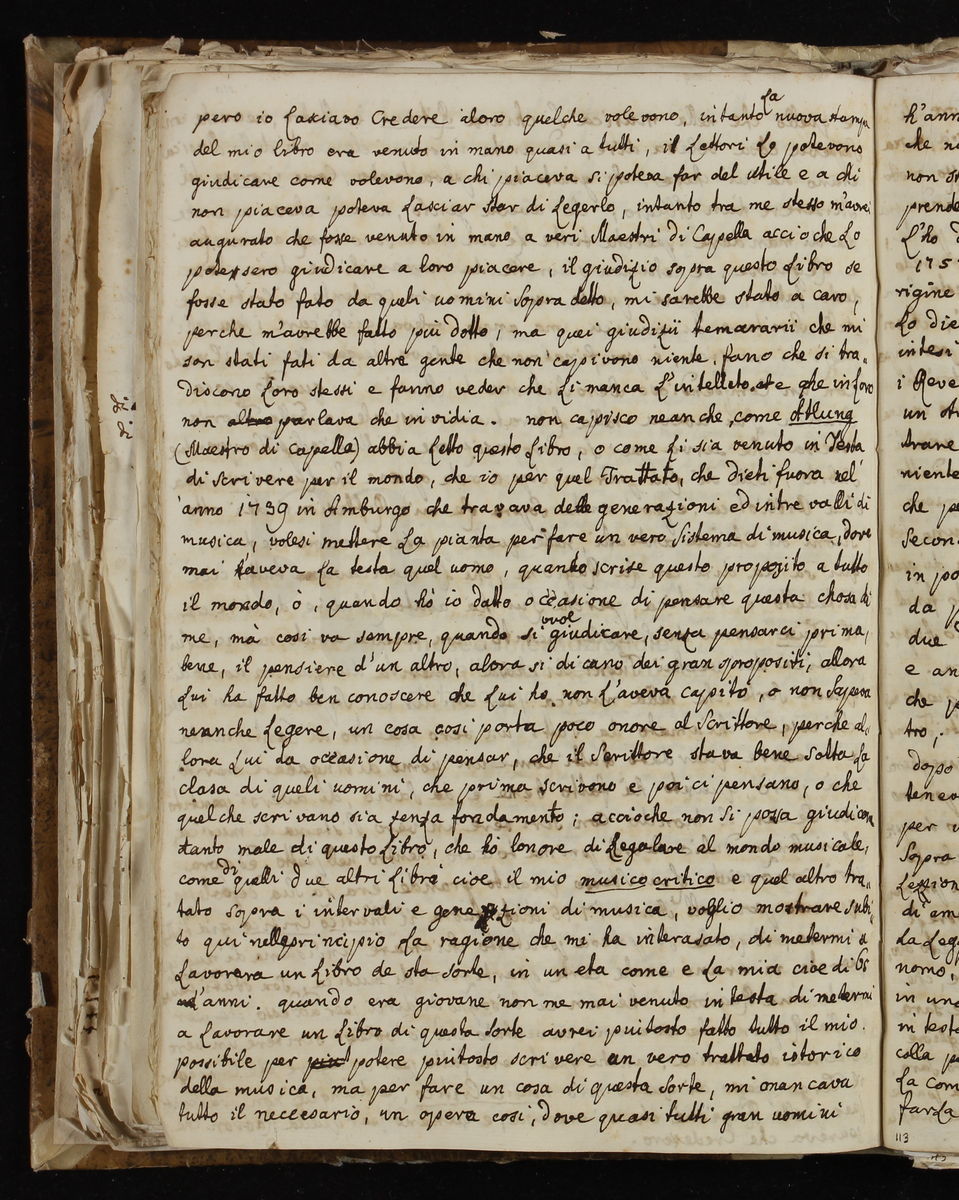 pero io Lasciavo Credere aloro quelche volevono, intanto La nuova stampa
del mio libro era venuto in mano quasi a tutti, il Lettori Lo potevono
giudicare come volevono, a chi piaceva si poteva far del utile e a chi
non piaceva poteva Lasciar star di Legerlo, intanto tra me stesso m'avrei
augurato che fosse venuto in mano a veri Maestri di Capella accioche Lo
potessero giudicare a loro piacere, il giudizio sopra questo Libro se
fosse stato fato da queli uomini sopra detto, mi sarebbe stato a caro,
perche m'avrebbe fatto piu dotto, ma quei giudizii temerarii che mi
son stati fati da altre gente che non capivono niente, fano che si tra„
discono Loro stessi e fanno veder che Li manca L'intelleto. et e che in Loro
non altro parlava che invidia. non capisco neanche come Ottlung
(Maestro di Capella) abbia Letto questo Libro, o come Li sia venuto in Testa
di scrivere per il mondo, che io per quel Trattato, che dieti fuora nel
anno 1739 in Amburgo che travava delle generazioni ed intrevalli di
musica, volesi mettere La pianta per fare un vero Sistema di musica, dove
mai haveva La testa quel uomo, quanto scrise questo propozito a tutto
il mondo, ò, quando hò io datto occasione di pensare questa chosa di
me, mà cosi va sempre, quando si vuol giudicare, senza pensarci prima,
bene, il pensiere d'un altro, alora si dicano dei gran spropositi, allora
Lui ha fatto ben conoscere che Lui ho non L'aveva capito, o non sapeva
neanche Legere, un cosa cosi porta poco onore al Scrittore, perche al„
lora Lui da occasione di pensar, che il Serittore stava bene sotta La
clasa di queli uomini, che prima scrivono e poi ci pensano, o che
quel che scrivano sia senza fondamento; accioche non si possa giudicar
tanto male di questo Libro, che hò Lonore di Regalare al mondo musicale,
come di quelli due altri Libri cioe il mio musico critico e quel altro tra„
tato sopra i intervali e generazioni di musica, voglio mostrare subi„
to qui nelle principio La ragione che mi ha interasato, di metermi a
Lavorara un Libro de sta sorte, in un eta come e La mia cioe di 65
d'anni. quando era giovane non me mai venuto in testa di metermi
a Lavorare un Libro di questa sorte avrei puitosto fatto tutto il mio
possibile per piu potere puitosto scrivere un vero trattato istorico
della musica, ma per fare un cosa di questa sorte, mi mancava
tutto il neccesario, un opera cosi, dove quasi tutti gran uomini
di„
di
113